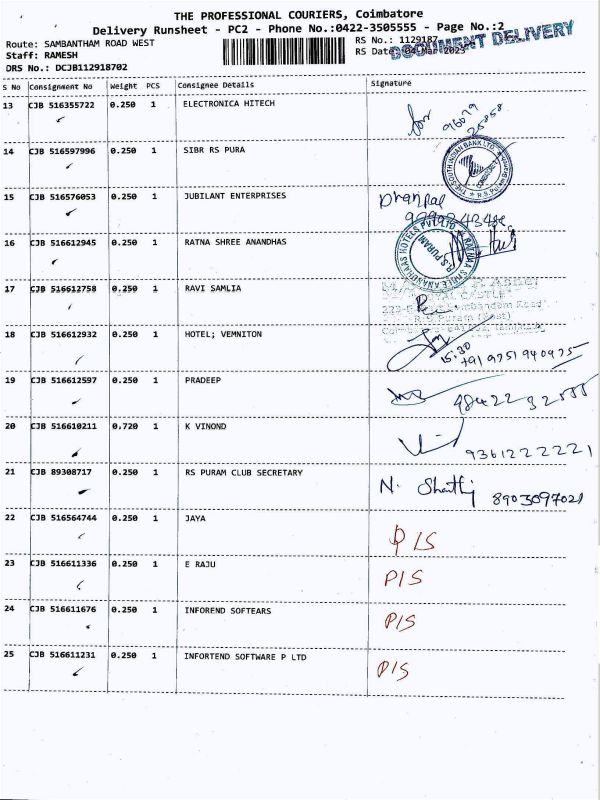 THE PROFESSIONAL COURIERS, Coimbatore
Delivery Runsheet - PC2 - Phone No.:0422-3505555 - Page No.:2
Route: SAMBANTHAM ROAD WEST
RS No.: 1129187
DOCUMENT DELIVERY
Staff: RAMESH
RS Date: 04-Mar-2023
DRS No.: DCJB112918702
S No Consignment No Weight PCS Consignee Details Signature
13 CJB 516355722 0.250 1 ELECTRONICA HITECH
96079
25858
14 CJB 516597996 0.250 1 SIBR RS PURA
THE SOUTH INDIAN BANK LTD.
15 CJB 516576053 0.250 1 JUBILANT ENTERPRISES
Dhanpal
16 CJB 516612945 0.250 1 RATNA SHREE ANANDHAS
R.S PURAM
17 CJB 516612758 0.250 1 RAVI SAMLIA
R.S Puram (East)
18 CJB 516612932 0.250 1 HOTEL; VEMNITON
15:30
+91 9751940975
19 CJB 516612597 0.250 1 PRADEEP
20 CJB 516610211 0.720 1 K VINOND
9361222221
21 CJB 89308717 0.250 1 RS PURAM CLUB SECRETARY
N. Shanthi 8903097021
22 CJB 516564744 0.250 1 JAYA
P/S
23 CJB 516611336 0.250 1 E RAJU
P/S
24 CJB 516611676 0.250 1 INFOREND SOFTEARS
P/S
25 CJB 516611231 0.250 1 INFORTEND SOFTWARE P LTD
P/S